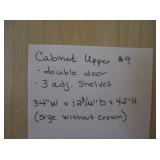 Cabinet Upper #9
- double door
- 3 adj. shelves
34"W x 12 3/4"D x 42"H
(size without crown)